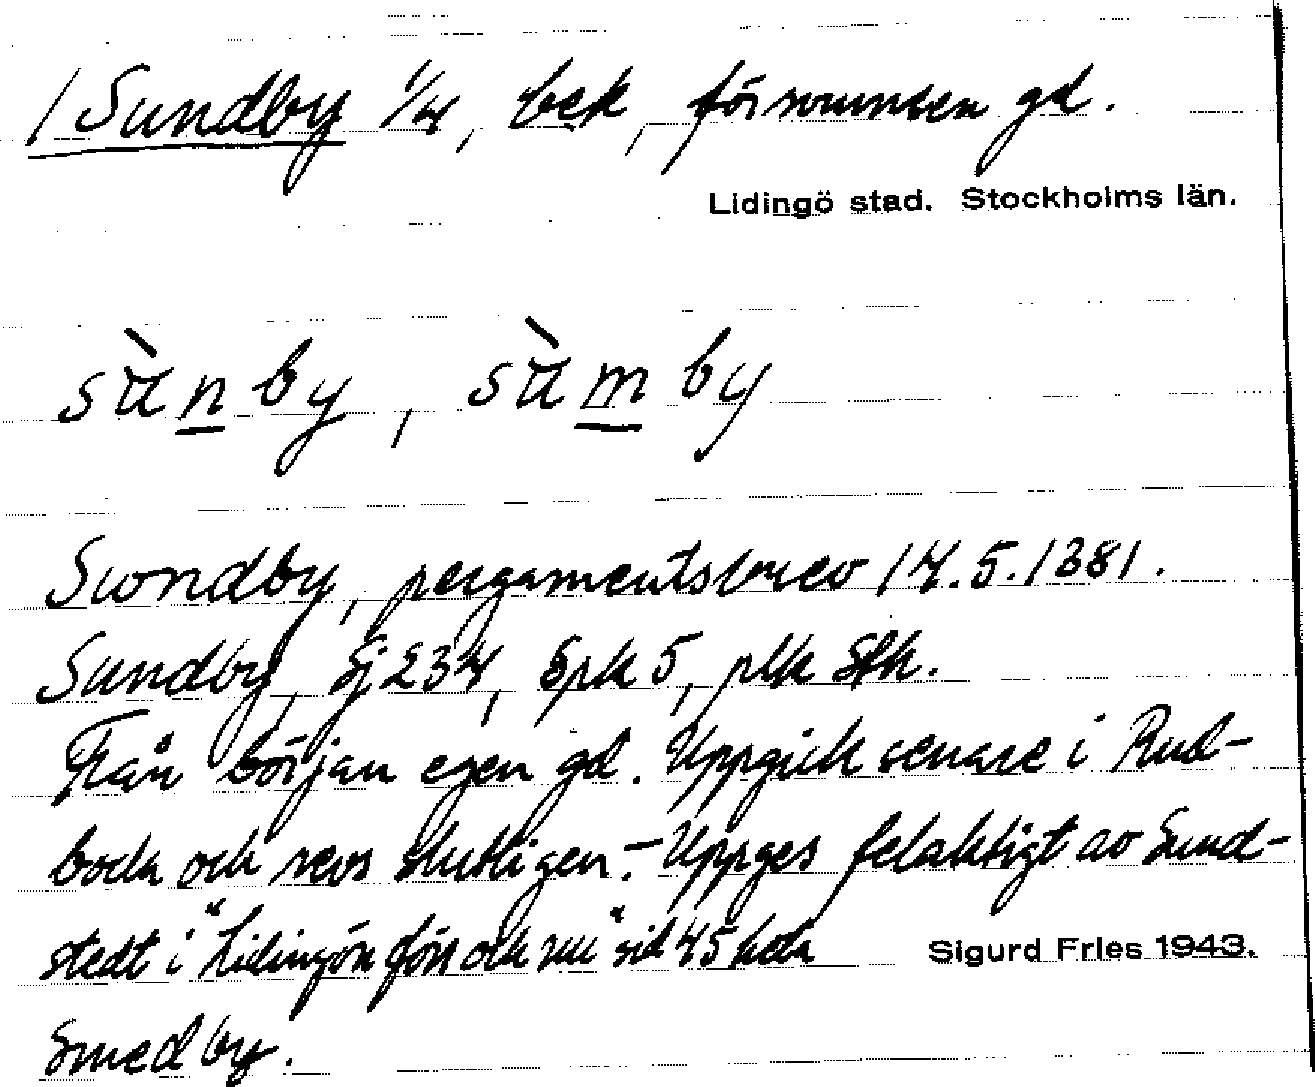 / Sundby 1/4, bek, försvunnen gd.
Lidingö stad. Stockholms län.
sùnby, sùmby
Swndby, pergamentsbrev 14.5.1381.
Sundby, Sj 234, Spk 5, plk Sthk.
Från början egen gd. Uppgick senare i Rud-
boda och revs slutligen. – Uppges felaktigt av Sund-
stedt i "Lidingön förr och nu" sid 45 heta
Sigurd Fries 1943.
Smedby.